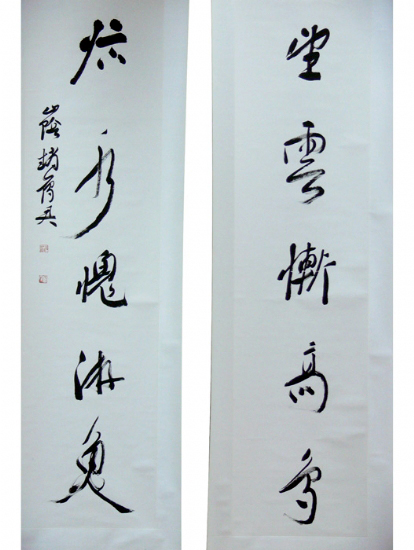 望雲慚高鳥
臨水愧游魚